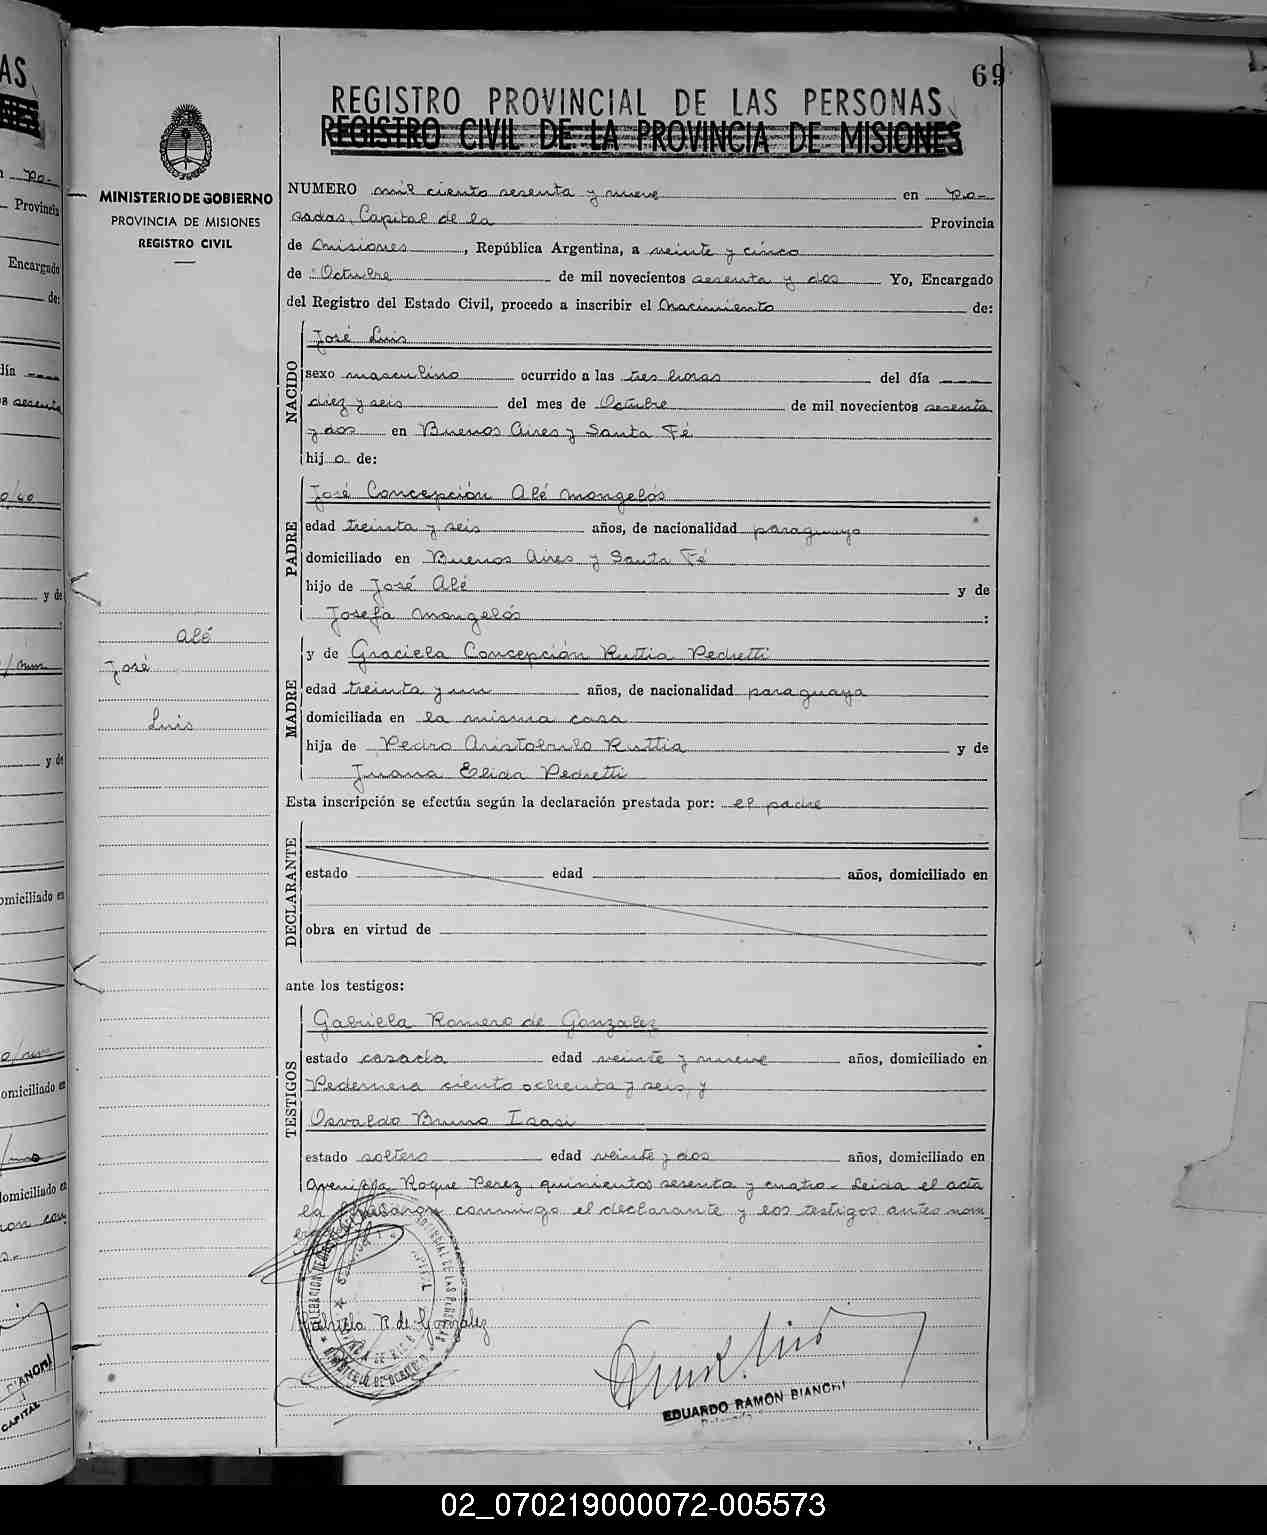 69
REGISTRO PROVINCIAL DE LAS PERSONAS
REGISTRO CIVIL DE LA PROVINCIA DE MISIONES
MINISTERIO DE GOBIERNO
PROVINCIA DE MISIONES
REGISTRO CIVIL
NUMERO mil ciento sesenta y nueve en Po-
sadas, Capital de la Provincia
de Misiones, República Argentina, a veinte y cinco
de Octubre de mil novecientos sesenta y dos Yo, Encargado
del Registro del Estado Civil, procedo a inscribir el Nacimiento de:
NACIDO
José Luis
sexo masculino ocurrido a las tres horas del día
diez y seis del mes de Octubre de mil novecientos sesenta
y dos en Buenos Aires y Santa Fé
hijo de:
PADRE
José Concepción Alé Mongelós
edad treinta y seis años, de nacionalidad paraguayo
domiciliado en Buenos Aires y Santa Fé
hijo de José Alé y de
Josefa Mongelós :
Alé
José
Luis
MADRE
y de Graciela Concepción Ruttia Pedretti
edad treinta y un años, de nacionalidad paraguaya
domiciliada en la misma casa
hija de Pedro Aristobulo Ruttia y de
Juana Elida Pedretti
Esta inscripción se efectúa según la declaración prestada por: el padre
DECLARANTE
estado edad años, domiciliado en
obra en virtud de
ante los testigos:
TESTIGOS
Gabriela Romero de Gonzalez
estado casada edad veinte y nueve años, domiciliado en
Pedernera ciento ochenta y seis, y
Osvaldo Bruno Isasi
estado soltero edad veinte y dos años, domiciliado en
Avenida Roque Perez, quinientos sesenta y cuatro.- Leida el acta
la firmaron conmigo el declarante y los testigos antes nom
Gabriela R de González
EDUARDO RAMON BIANCHI
02_070219000072-005573